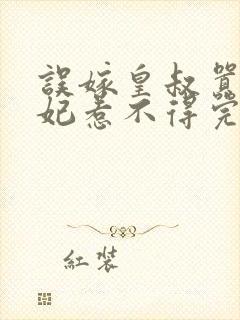 誤嫁皇叔
妃惹不得完
紅裝